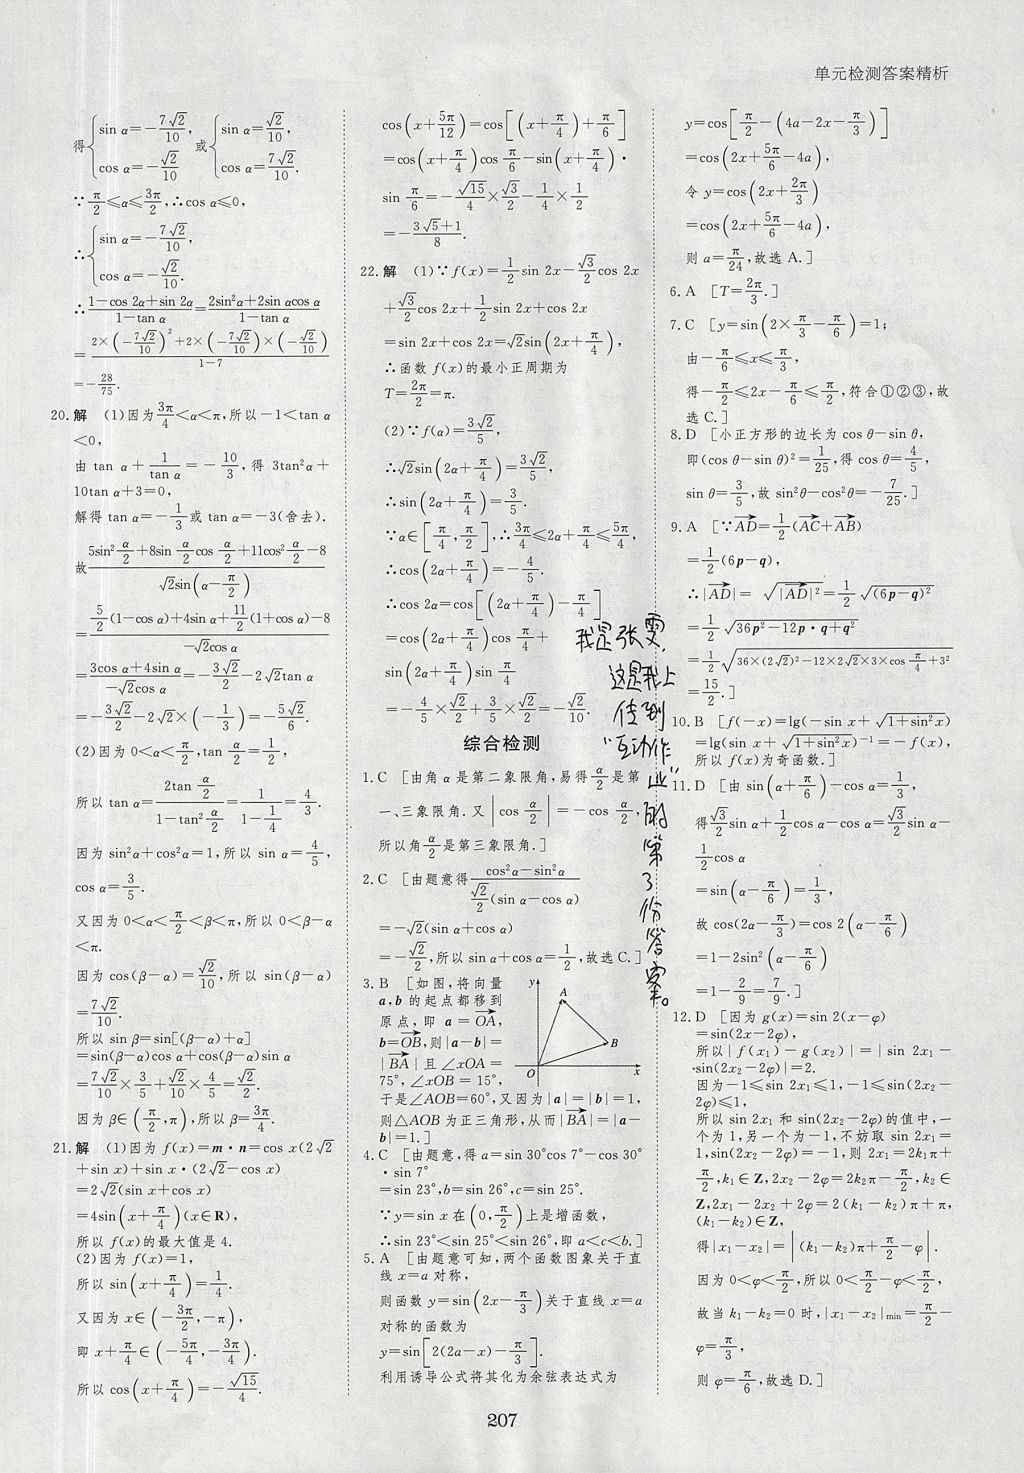 单元检测答案精析
得{sin α=-7√2/10, cos α=-√2/10 或{sin α=√2/10, cos α=7√2/10.
∵π/2≤α≤3π/2,∴cos α≤0,
∴{sin α=-7√2/10, cos α=-√2/10.
∴(1-cos 2α+sin 2α)/(1-tan α)=(2sin²α+2sin αcos α)/(1-tan α)
=(2×(-7√2/10)²+2×(-7√2/10)×(-√2/10))/(1-7)
=-28/75.
20.解 (1)因为3π/4<α<π,所以-1<tan α
<0,
由 tan α+1/tan α=-10/3,得 3tan²α+
10tan α+3=0,
解得 tan α=-1/3或 tan α=-3(舍去).
故(5sin²α/2+8sin α/2cos α/2+11cos²α/2-8)/(√2sin(α-π/2))
=(5/2(1-cos α)+4sin α+11/2(1+cos α)-8)/(-√2cos α)
=(3cos α+4sin α-3)/(-√2cos α)=-3√2/2-2√2tan α
=-3√2/2-2√2×(-1/3)=-5√2/6.
(2)因为 0<α<π/2,tan α/2=1/2,
所以 tan α=(2tan α/2)/(1-tan²α/2)=1/(1-1/4)=4/3.
因为 sin²α+cos²α=1,所以 sin α=4/5,
cos α=3/5.
又因为 0<α<π/2<β<π,所以 0<β-α
<π.
因为 cos(β-α)=√2/10,所以 sin(β-α)
=7√2/10.
所以 sin β=sin[(β-α)+α]
=sin(β-α)cos α+cos(β-α)sin α
=7√2/10×3/5+√2/10×4/5=√2/2.
因为 β∈(π/2,π),所以 β=3π/4.
21.解 (1)因为 f(x)=m·n=cos x(2√2
+sin x)+sin x·(2√2-cos x)
=2√2(sin x+cos x)
=4sin(x+π/4)(x∈R),
所以 f(x)的最大值是 4.
(2)因为 f(x)=1,
所以 sin(x+π/4)=1/4.
又因为 x∈(-3π/2,-π),
即 x+π/4∈(-5π/4,-3π/4).
所以 cos(x+π/4)=-√15/4.
cos(x+5π/12)=cos[(x+π/4)+π/6]
=cos(x+π/4)cos π/6-sin(x+π/4)·
sin π/6=-√15/4×√3/2-1/4×1/2
=-(3√5+1)/8.
22.解 (1)∵f(x)=1/2sin 2x-√3/2cos 2x
+√3/2cos 2x+1/2sin 2x+cos 2x
=sin 2x+cos 2x=√2sin(2x+π/4),
∴函数 f(x)的最小正周期为
T=2π/2=π.
(2)∵f(α)=3√2/5,
∴√2sin(2α+π/4)=3√2/5,
∴sin(2α+π/4)=3/5.
∵α∈[π/4,π/2],∴3π/4≤2α+π/4≤5π/4,
∴cos(2α+π/4)=-4/5.
∴cos 2α=cos[(2α+π/4)-π/4]
=cos(2α+π/4)cos π/4+
sin(2α+π/4)sin π/4
=-4/5×√2/2+3/5×√2/2=-√2/10.
综合检测
1.C [由角 α 是第二象限角,易得α/2是第
一、三象限角.又|cos α/2|=-cos α/2,
所以角α/2是第三象限角.]
2.C [由题意得(cos²α-sin²α)/(√2/2(sin α-cos α))
=-√2(sin α+cos α)
=-√2/2,所以 sin α+cos α=1/2,故选 C.]
3.B [如图,将向量
a,b 的起点都移到
原点,即 a=OA,
b=OB,则|a-b|=
|BA|且∠xOA=
75°,∠xOB=15°,
于是∠AOB=60°,又因为|a|=|b|=1,
则△AOB 为正三角形,从而|BA|=|a-
b|=1.]
y
A
B
O
x
4.C [由题意,得 a=sin 30°cos 7°-cos 30°
·sin 7°
=sin 23°,b=sin 26°,c=sin 25°.
∵y=sin x 在(0,π/2)上是增函数,
∴sin 23°<sin 25°<sin 26°,即 a<c<b.]
5.A [由题意可知,两个函数图象关于直
线 x=a 对称,
则函数 y=sin(2x-π/3)关于直线 x=a
对称的函数为
y=sin[2(2a-x)-π/3]
利用诱导公式将其化为余弦表达式为
y=cos[π/2-(4a-2x-π/3)]
=cos(2x+5π/6-4a),
令 y=cos(2x+2π/3)
=cos(2x+5π/6-4a),
则 a=π/24,故选 A.]
6.A [T=2π/3.]
7.C [y=sin(2×π/3-π/6)=1;
由-π/6≤x≤π/3,
得-π/2≤2x-π/6≤π/2,符合①②③,故
选 C.]
8.D [小正方形的边长为 cos θ-sin θ,
即(cos θ-sin θ)²=1/25,得 cos θ=4/5,
sin θ=3/5,故 sin²θ-cos²θ=-7/25.]
9.A [∵AD=1/2(AC+AB)
=1/2(6p-q),
∴|AD|=√|AD|²=1/2√(6p-q)²
=1/2√36p²-12p·q+q²
=1/2√36×(2√2)²-12×2√2×3×cos π/4+3²
=15/2.]
10.B [f(-x)=lg(-sin x+√1+sin²x)
=lg(sin x+√1+sin²x)⁻¹=-f(x),
所以 f(x)为奇函数.]
11.D [由 sin(α+π/6)-cos α=1/3,
得√3/2sin α+1/2cos α-cos α=√3/2sin α-
1/2cos α
=sin(α-π/6)=1/3,
故 cos(2α-π/3)=cos 2(α-π/6)
=1-2sin²(α-π/6)
=1-2/9=7/9.]
12.D [因为 g(x)=sin 2(x-φ)
=sin(2x-2φ),
所以|f(x₁)-g(x₂)|=|sin 2x₁-
sin(2x₂-2φ)|=2.
因为-1≤sin 2x₁≤1,-1≤sin(2x₂-
2φ)≤1,
所以 sin 2x₁ 和 sin(2x₂-2φ)的值中,一
个为 1,另一个为-1,不妨取 sin 2x₁=
1,sin(2x₂-2φ)=-1,则 2x₁=2k₁π+
π/2,k₁∈Z,2x₂-2φ=2k₂π-π/2,k₂∈
Z,2x₁-2x₂+2φ=2(k₁-k₂)π+π,
(k₁-k₂)∈Z,
得|x₁-x₂|=|(k₁-k₂)π+π/2-φ|.
因为 0<φ<π/2,所以 0<π/2-φ<π/2,
故当 k₁-k₂=0 时,|x₁-x₂|min=π/2-
φ=π/3,
则 φ=π/6,故选 D.]
我是张雯,
这是我上
传到
“互动作
业”
的
第
3
份
答
案。
207